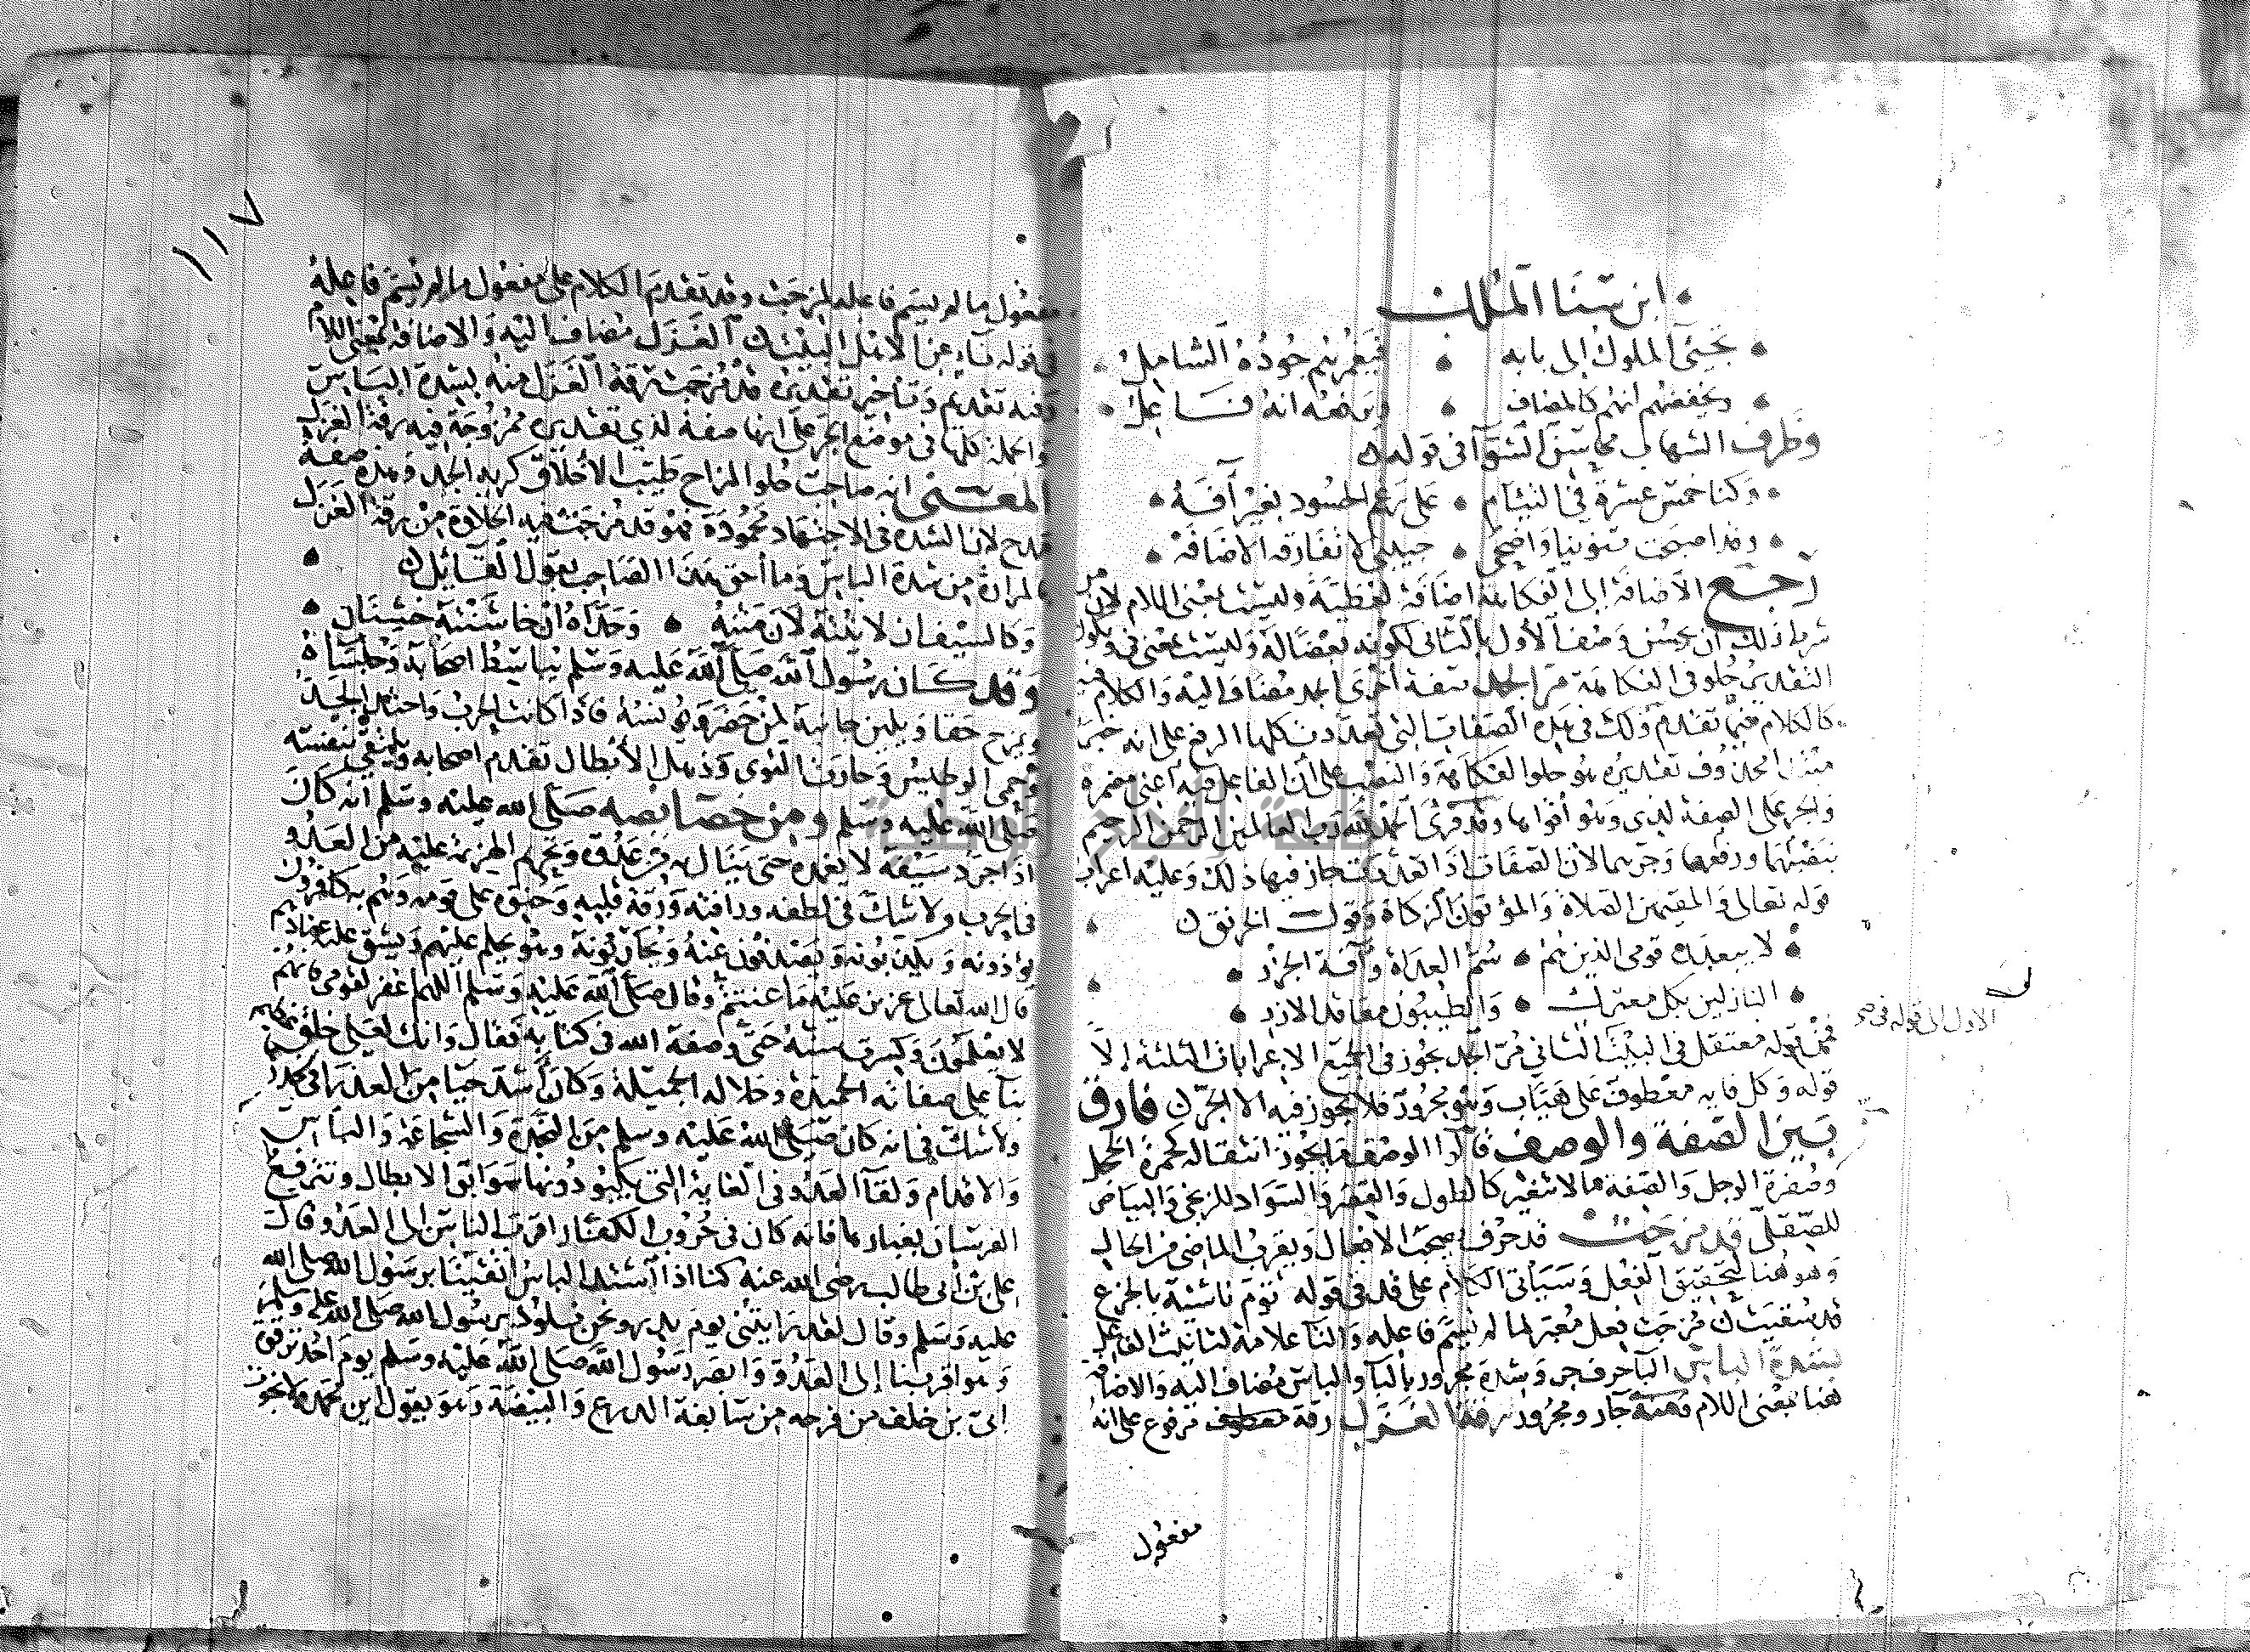 ابن سنا الملك
تجيئ الملوك الى بابه فيغمرهم جوده الشامل
وبخفضهم انهم كالمضاف ويرفعه انه فاعل
وظرف الشهاب محاسن الشوا فى قوله
وكنا خمس عشرة فى التئام على رغم الحسود بغير آفة
وقد اصبحت تنوينا واضحى حبيبى لا تفارقه الاضافة
رجع الاضافة الى الفكاهة اضافة لفظية وليست بمعنى اللام لان من
شرط ذلك ان يحسن وصف الاول بالثانى لكونه بعضا له وليست بمعنى فى ويكون
التقدير حلو فى الفكاهة مر الجد صفة اخرى الجد مضاف اليه والكلام فيه
كالكلام فيما تقدم ولك فى هذه الصفات التى تعددت كلها الرفع على انه خبر
مبتدا محذوف تقديره هو حلو الفكاهة والنصب على ان الفاعل فيه اعنى مضمرة
والجر على الصفة لذى وهو أقواها وقد قرئ الحمد لله رب العالمين الرحمن الرحيم
بنصبهما ورفعهما وجرهما لان الصفات اذا تعددت جاز فيها ذلك وعليه اعراب
قوله تعالى والمقيمين الصلاة والمؤتون الزكاة وقول الخرنق
لا يبعدن قومى الذين هم سُمّ العداة وآفة الجزر
النازلين بكل معترك والطيبون معاقد الازر
فمن قوله معتقل فى البيت الثانى مر الجد يجوز فى الجميع الاعرابات الثلثة الا
الاول الى قوله فى
قوله وكل فانه معطوف على هياب وهو مجرور فلا يجوز فيه الا الجر فارق
بين الصفة والوصف قالوا الوصف ما يجوز انتقاله كحمرة الخجل
وصفرة الوجل والصفة ما لا تتغير كالطول والقصر والسواد للزنجى والبياض
للصقلى قد مزجت قد حرف يصحب الافعال ويقرب الماضى من الحال
وهو هنا لتحقيق الفعل وسيأتى الكلام على قد فى قوله تؤم ناشئة بالجزع
قد سقيت مزجت فعل مغير لما لم يسم فاعله والتا علامة لتانيث الفاعل
بشدة الباس البا حرف جر وشدة مجرور بالبا والباس مضاف اليه والاضافة
هنا بمعنى اللام جار ومجرور رقة الغزل رقة مرفوع على انه
مفعول
١١٧
مفعول ما لم يسم فاعله لمزجت وقد تقدم الكلام على مفعول ما لم يسم فاعله
فى قوله ناء عن الاهل البيت الغزل مضاف اليه والاضافة بمعنى اللام
وفيه تقديم وتاخير تقديره قد مزجت رقة الغزل منه بشدة الباس
والجملة كلها فى موضع الجر على انها صفة لذي تقديره ممزوجة فيه رقة الغزل
المعنى انه صاحب حلو المزاح طيب الأخلاق كريه الجد وهذه صفة
مدح لان الشدة فى الاجتهاد محمودة فهو قد مزجت فيه الحلاوة من رقة الغزل
بالمرارة من شدة الباس وما أحق هذا الصاحب بقول القائل
وكالسيف ان لاينته لان متنه وحداه ان خاشنته خشنان
وقد كان رسول الله صلى الله عليه وسلم يباسط اصحابه وجلساه
ويمزح حقا ويلين جانبه لمن حضر ويؤنسه فاذا كانت الحرب واحتد الجد
وحمى الوطيس وحارت القوى وذهل الأبطال تقدم اصحابه ويلتقى بنفسه
صلى الله عليه وسلم ومن خصائصه صلى الله عليه وسلم انه كان
اذا جرد سيفه لا يغمده حتى ينال من عدوه وتحرم الهزيمة عليه من العدو
فى الحرب ولا شك فى لطفه ورافته ورقة قلبه وحنوه على قومه وهم به كافرون
يؤذونه ويكذبونه ويصدفون عنه ويحاربونه وهو يحلم عليهم ويشق عليه عنادهم
قال الله تعالى عزيز عليه ما عنتم وقال صلى الله عليه وسلم اللهم اغفر لقومى فانهم
لا يعلمون وكبرت سنه حتى وصفه الله فى كتابه فقال وانك لعلى خلق عظيم
بنا على صفاته الحميدة وخلاله الجميلة وكان أشد حيا من العذرا فى خدرها
ولا شك فى انه كان صلى الله عليه وسلم من النجدة والشجاعة والباس
والاقدام ولقا العدو فى الغاية التى يكبو دونها سوابق الابطال وتترفع
الفرسان بغبارها فانه كان فى حروب الكفار اقرب الناس الى العدو قال
على بن أبى طالب رضى الله عنه كنا اذا اشتد الباس اتقينا برسول الله صلى الله
عليه وسلم وقال لقد رايتنى يوم بدر ونحن نلوذ برسول الله صلى الله عليه وسلم
وهو اقربنا إلى العدو وابصر رسول الله صلى الله عليه وسلم يوم احد ترقوة
ابىّ بن خلف من فرجه من سابغة الدرع والبيضة وهو يقول اين محمد لا نجوت